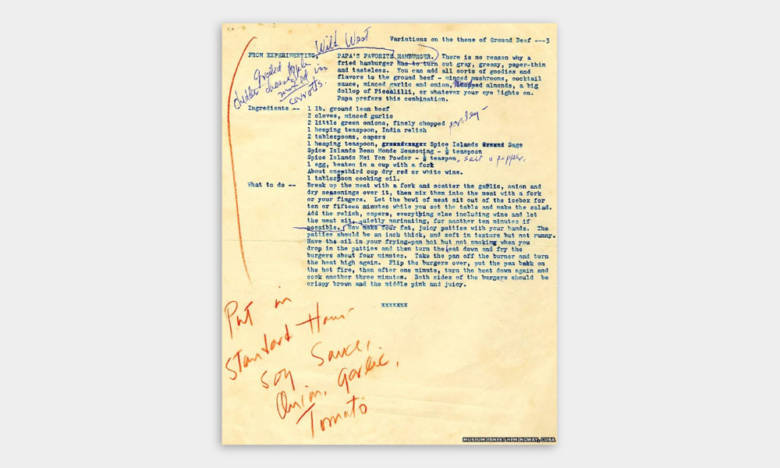 Variations on the theme of Ground Beef ---3
Wild West
FROM EXPERIMENTING, PAPA'S FAVORITE HAMBURGER. There is no reason why a
fried hamburger has to turn out gray, greasy, paper-thin
and tasteless. You can add all sorts of goodies and
flavors to the ground beef - minced mushrooms, cocktail
sauce, minced garlic and onion, chopped almonds, a big
dollop of Piccalilli, or whatever your eye lights on.
Papa prefers this combination.
Grated apple
cheddar cheese
in
carrots.
Ingredients -- 1 lb. ground lean beef
2 cloves, minced garlic
2 little green onions, finely chopped parsley-
1 heaping teaspoon, India relish
2 tablespoons, capers
1 heaping teaspoon, Spice Islands Sage
Spice Islands Beau Monde Seasoning - ½ teaspoon
Spice Islands Mei Yen Powder - ½ teaspon, salt & pepper.
1 egg, beaten in a cup with a fork
About one-third cup dry red or white wine.
1 tablespoon cooking oil.
What to do -- Break up the meat with a fork and scatter the garlic, onion and
dry seasonings over it, then mix them into the meat with a fork
or your fingers. Let the bowl of meat sit out of the icebox for
ten or fifteen minutes while you set the table and make the salad.
Add the relish, capers, everything else including wine and let
the meat sit, quietly marinating, for another ten minutes if
possible. Now make four fat, juicy patties with your hands. The
patties should be an inch thick, and soft in texture but not runny.
Have the oil in your frying-pan hot but not smoking when you
drop in the patties and then turn the heat down and fry the
burgers about four minutes. Take the pan off the burner and turn
the heat high again. Flip the burgers over, put the pan back on
the hot fire, then after one minute, turn the heat down again and
cook another three minutes. Both sides of the burgers should be
crispy brown and the middle pink and juicy.
xxxxxxx
Put in
Standard Ham-
Soy Sauce,
Onion, Garlic,
Tomato